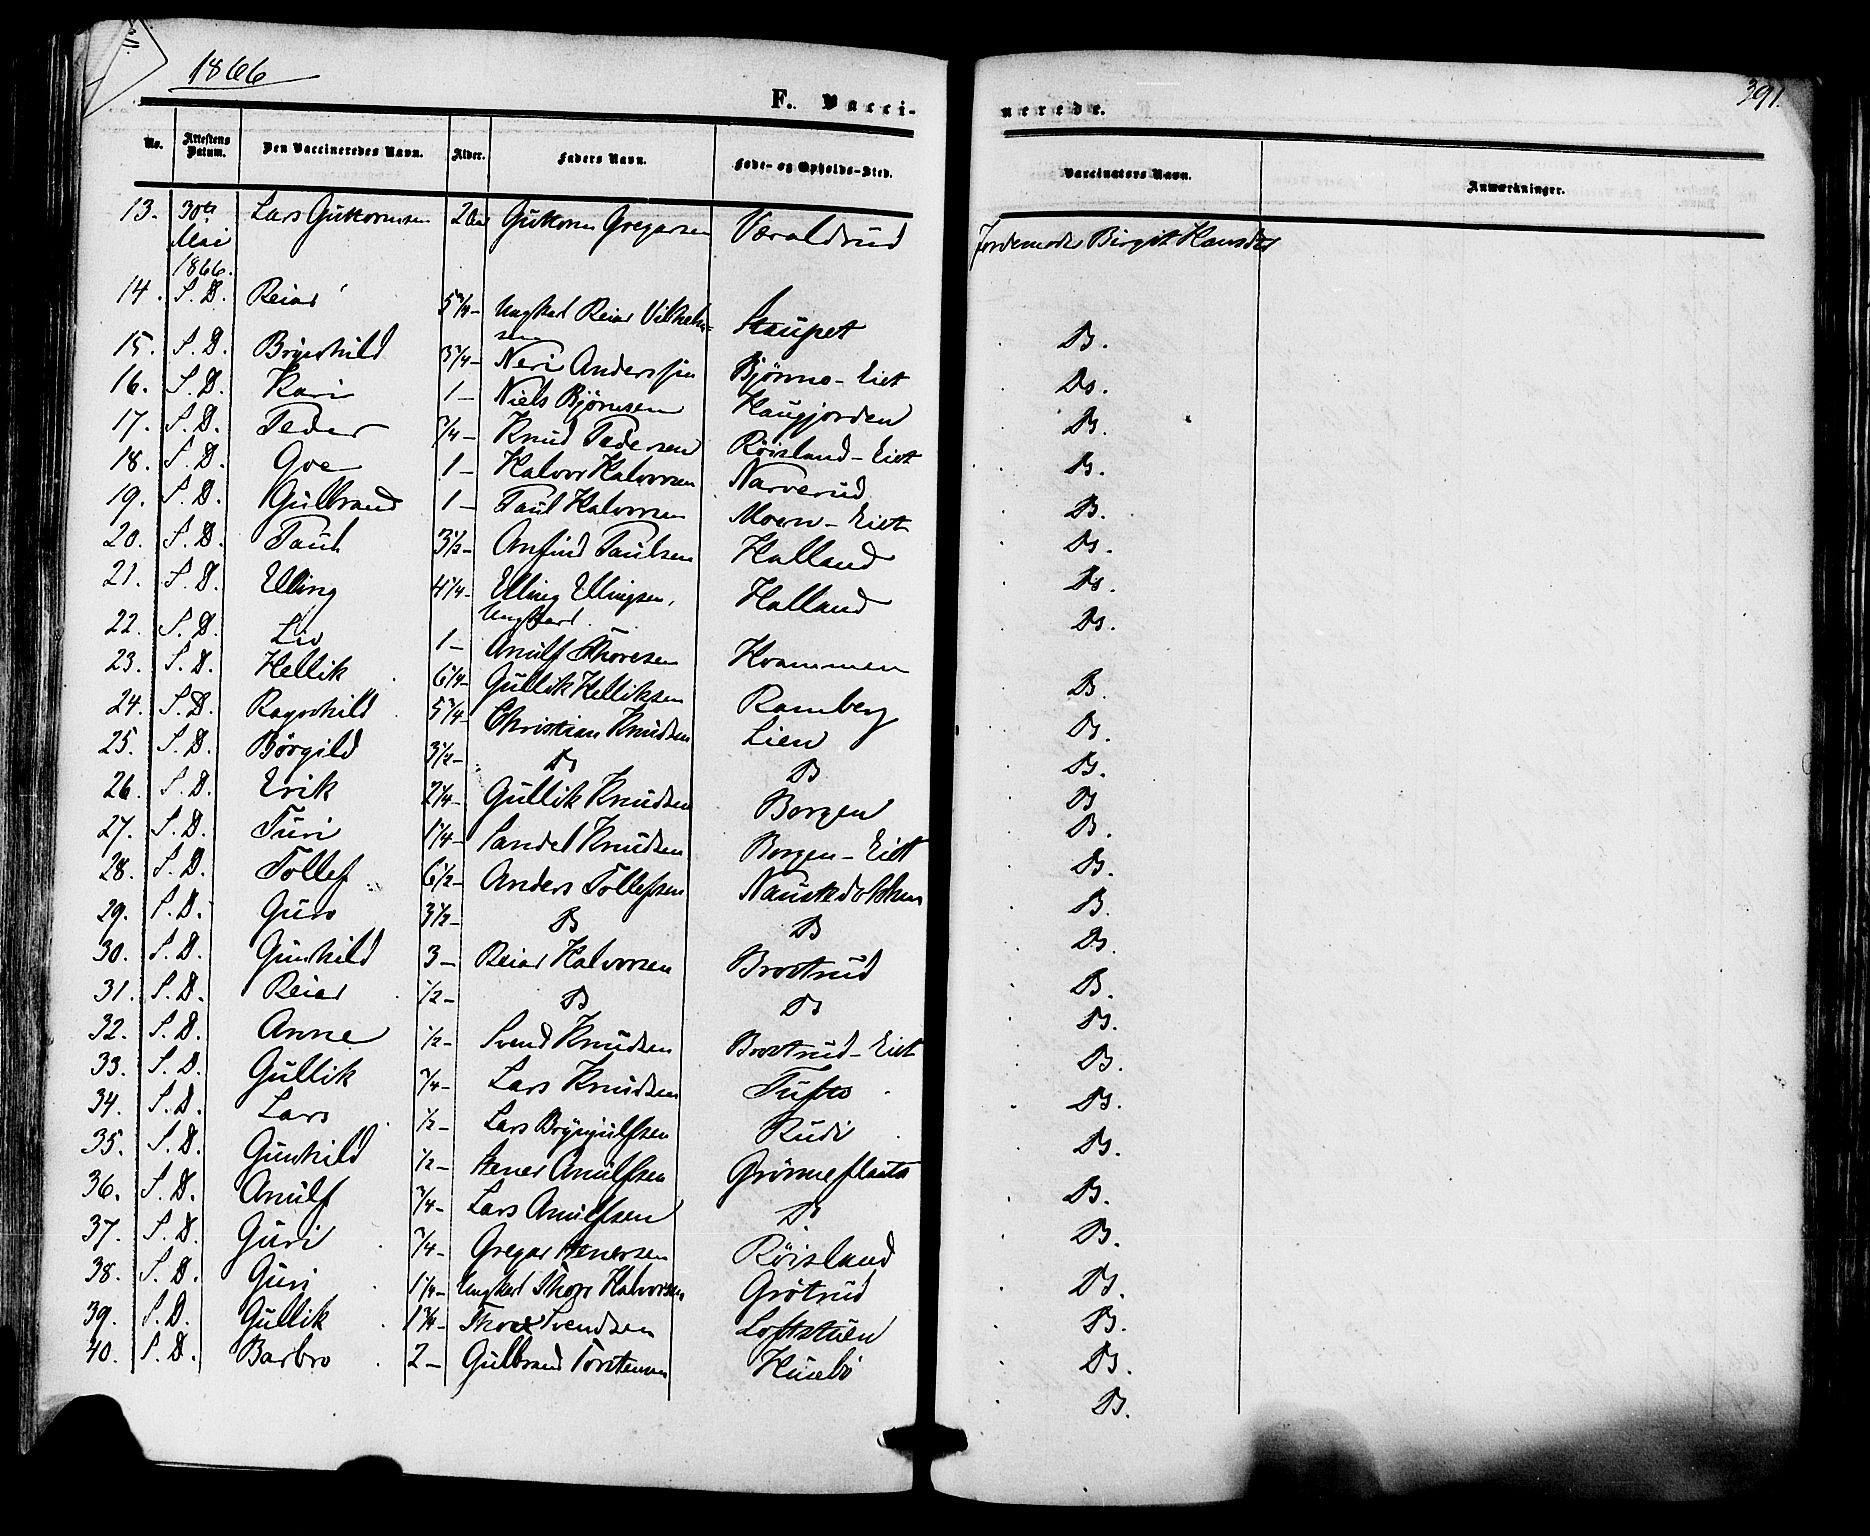 1866
391.
F. Vacci-
nerede.
No. Attestens Datum. Den Vaccineredes Navn. Alder. Faders Navn. Føde- og Opholds-Sted. Vaccinators Navn. Anmærkninger.
13. 30te Mai 1866. Lars Guttormsen 2 Guttorm Gregarsen Væraldrud Jordemoder Birgit Hansdtr
14. S. D. Reiar 5 3/4 - Ungkarl Reiar Vilhelmsen Staupet D.
15. S. D. Brynhild 3 3/4 - Neri Anderssen Bjørnno - Eiet Do.
16. S. D. Kari 1 - Niels Bjørnsen Haugjorden D.
17. S. D. Peder 3/4 - Knud Pedersen Røisland - Eiet D.
18. S. D. Goe 1 - Halvor Halvorsen Narverud D.
19. S. D. Gulbrand 1 - Paul Halvorsen Moen - Eiet Do.
20. S. D. Paul 3 1/2 - Anfind Paulsen Halland Do.
21. S. D. Elling 4 1/4 - Elling Ellingsen, Ungkarl. Halland Do.
22. S. D. Liv 1 - Anulf Thoresen Kvammen D.
23. S. D. Hellik 6 1/4 - Gullik Helliksen Ramberg D.
24. S. D. Ragnhild 5 3/4 - Christian Knudsen Lien D.
25. S. D. Børgild 3 1/2 - D D D
26. S. D. Erik 2 1/4 - Gullik Knudsen Borgen D.
27. S. D. Turi 1 1/4 - Sandel Knudsen Borgen - Eiet D.
28. S. D. Tollef 6 1/2 - Anders Tollefsen D.
29. S. D. Guro 3 1/2 - D D D.
30. S. D. Gunhild 3 - Reiar Halvorsen Brostrud D.
31. S. D. Reiar 1/2 - D D D.
32. S. D. Anne 1/2 - Svend Knudsen Brostrud - Eiet D.
33. S. D. Gullik 3/4 - Lars Knudsen Tufto D.
34. S. D. Lars 1/2 - Lars Brynjulfsen Rudi D.
35. S. D. Gunhild 1/2 - Stener Anulfsen Grønneflaata D.
36. S. D. Anulf 3/4 - Lars Anulfsen D D.
37. S. D. Guri 3/4 - Gregar Stenersen Røisland D.
38. S. D. Guri 1 1/4 - Ungkarl Thore Halvorsen Grøtrud D.
39. S. D. Gullik 1 3/4 - Thore Svendsen Loftstuen D.
40. S. D. Barbro 2 - Gulbrand Torstensen Husebø D.